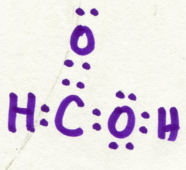 O
H:C:O:H